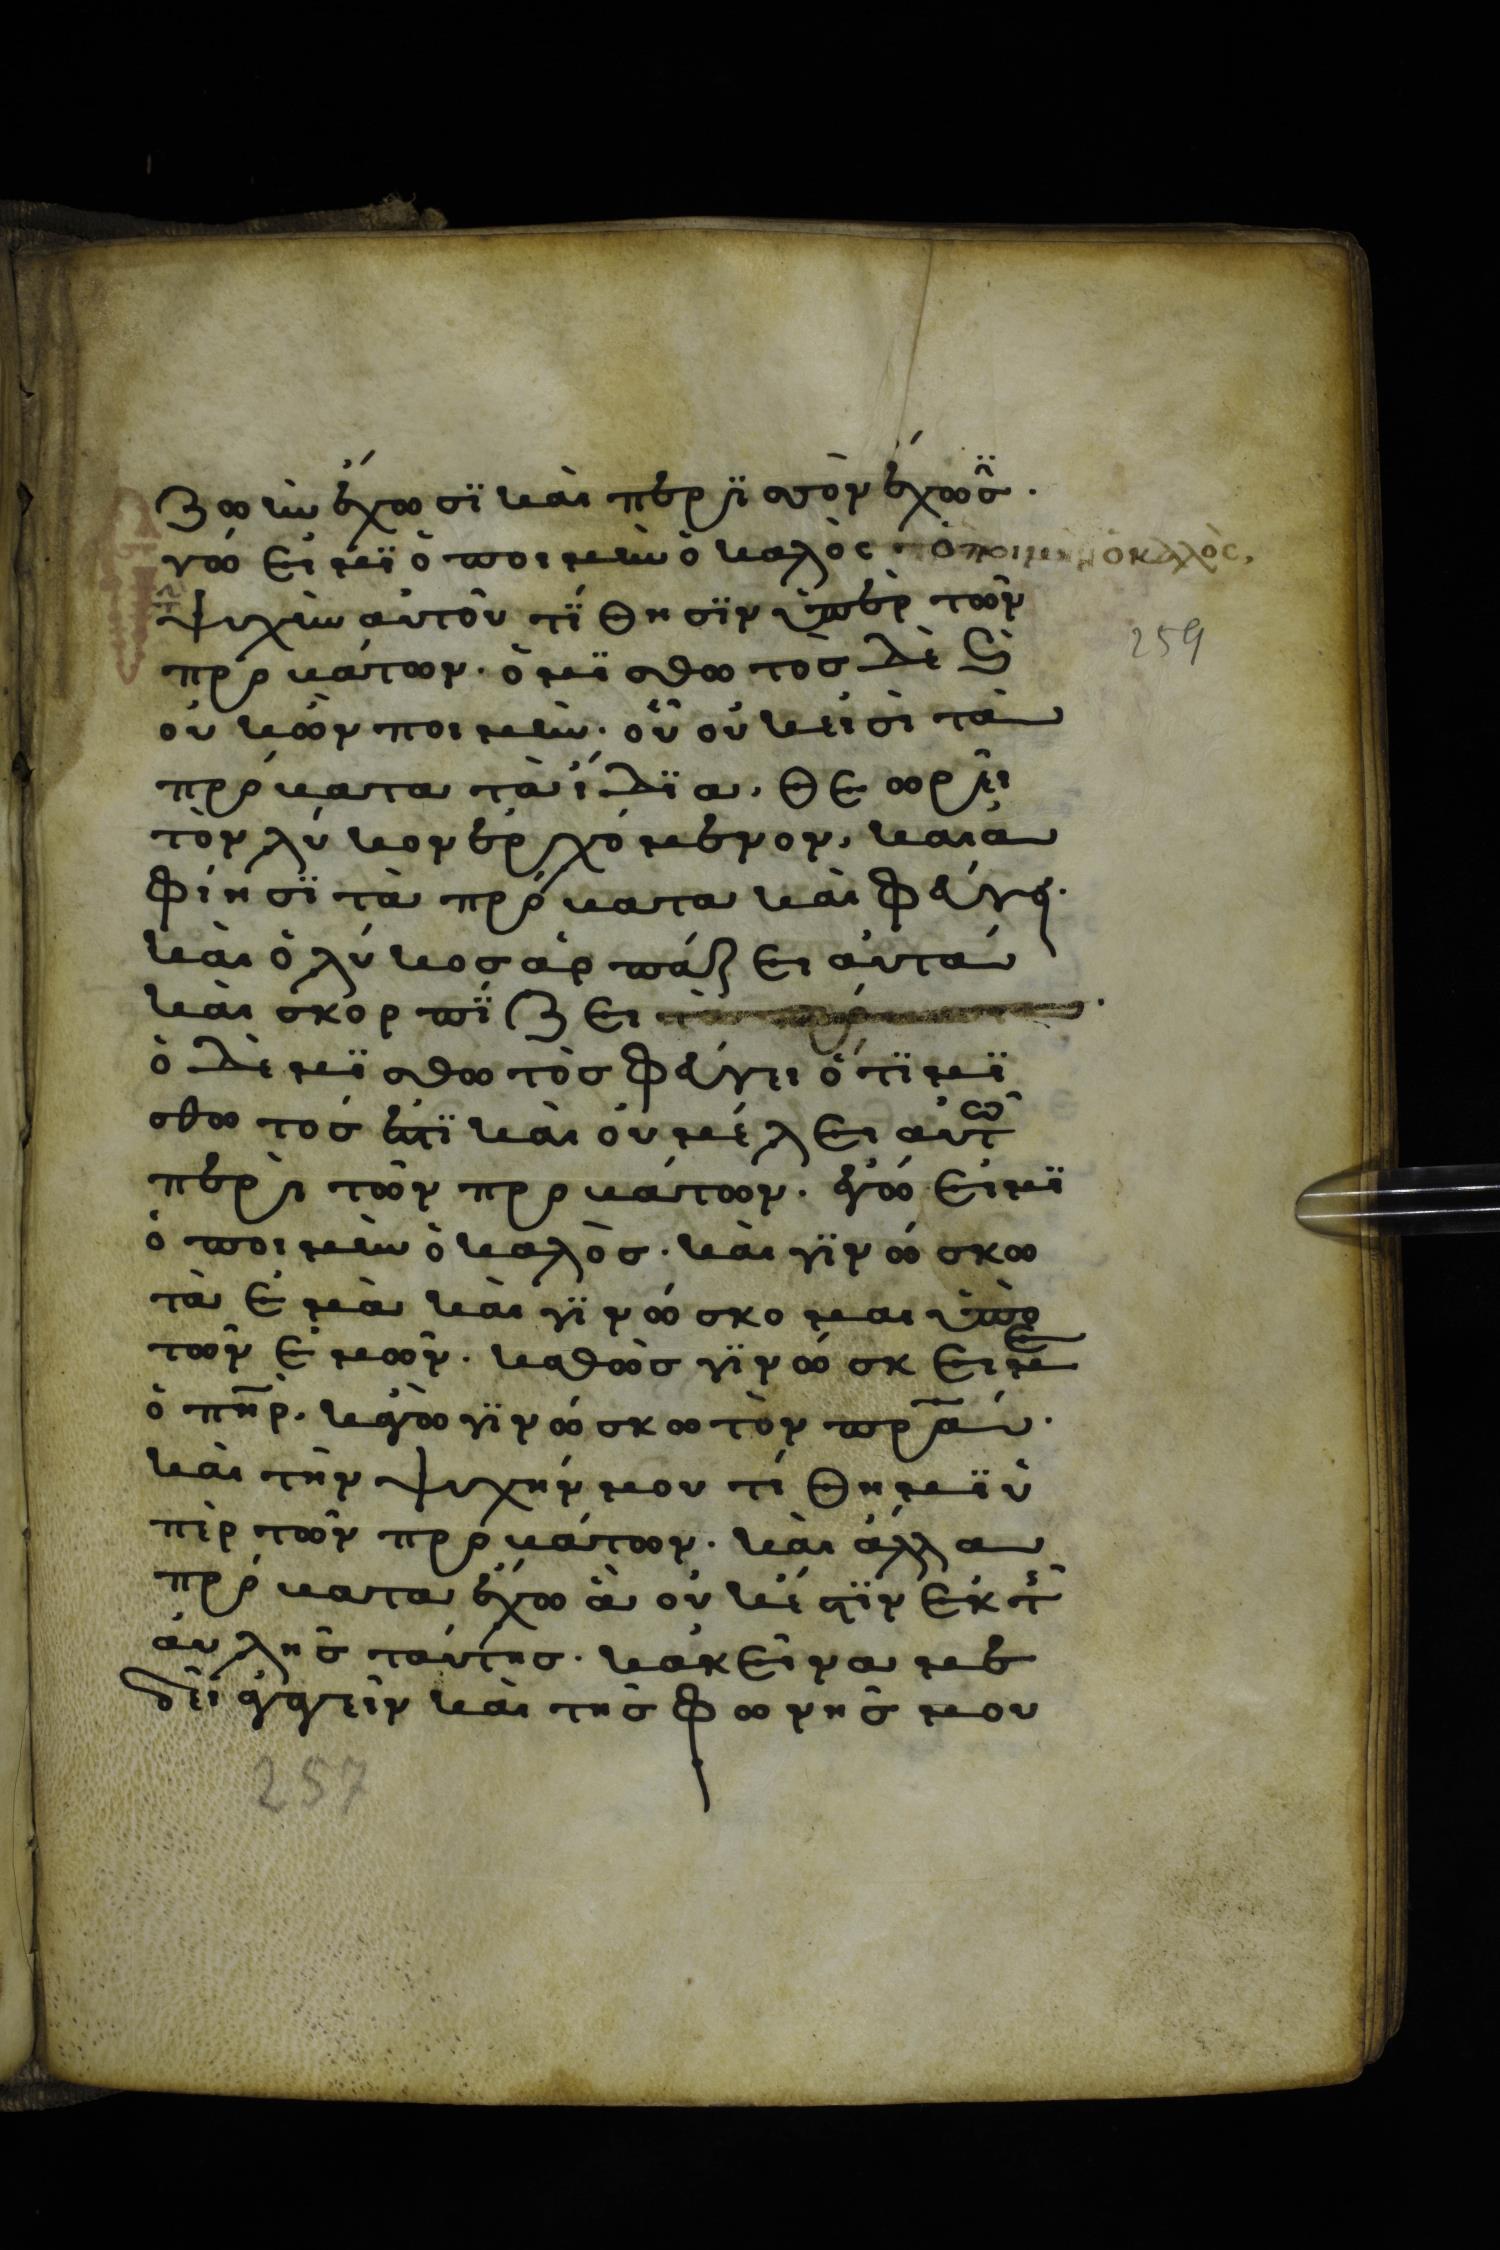 ζωὴν ἔχωσϊ καὶ περϊσσὸν ἔχωσϊ̂.
γώ εἰμϊ ὁ ποιμὴν ὁ καλὸς ὁ ποιμὴν ὁ καλὸς,
τὴν
ψυχὴν αὐτοῦ τΐθησϊν ὑπὲρ τῶν
259
προβάτων. ὁ μϊσθωτὸσ δὲ ς̀
οὐκ ὢν ποιμὴν. οὗ οὐκ εἰσὶ τὰ
πρόβατα τὰ ἴδϊα. θεωρεῖ
τὸν λύκον ἐρχόμενον, καὶ ἀ
φίησϊ τὰ πρόβατα καὶ φεύγει.
καὶ ὁ λύκοσ ἁρπάζει αὐτά
καὶ σκορπΐζει τὰ πρόβατα.
ὁ δὲ μϊσθωτὸσ φεύγει ὅτϊ μϊ
σθωτόσ ἐστϊ καὶ οὐ μέλει αὐτῶ
περὶ τῶν προβάτων. ἐγώ εἰμϊ
ὁ ποιμὴν ὁ καλὸσ. καὶ γϊνώσκω
τὰ ἐμὰ καὶ γϊνώσκομαι ὑπὸ
τῶν ἐμῶν. καθὼσ γϊνώσκει με
ὁ πηρ. κἀγὼ γϊνώσκω τὸν πρα.
καὶ τὴν ψυχήν μου τίθημϊ ὑ
πὲρ τῶν προβάτων. καὶ ἄλλα
πρόβατα ἔχω ἃ οὐκ ἔστϊν ἐκ τῆς
αὐλῆσ ταύτησ. κἀκεῖνα με
δεῖ ἀγαγεῖν καὶ τῆσ φωνῆσ μου
257